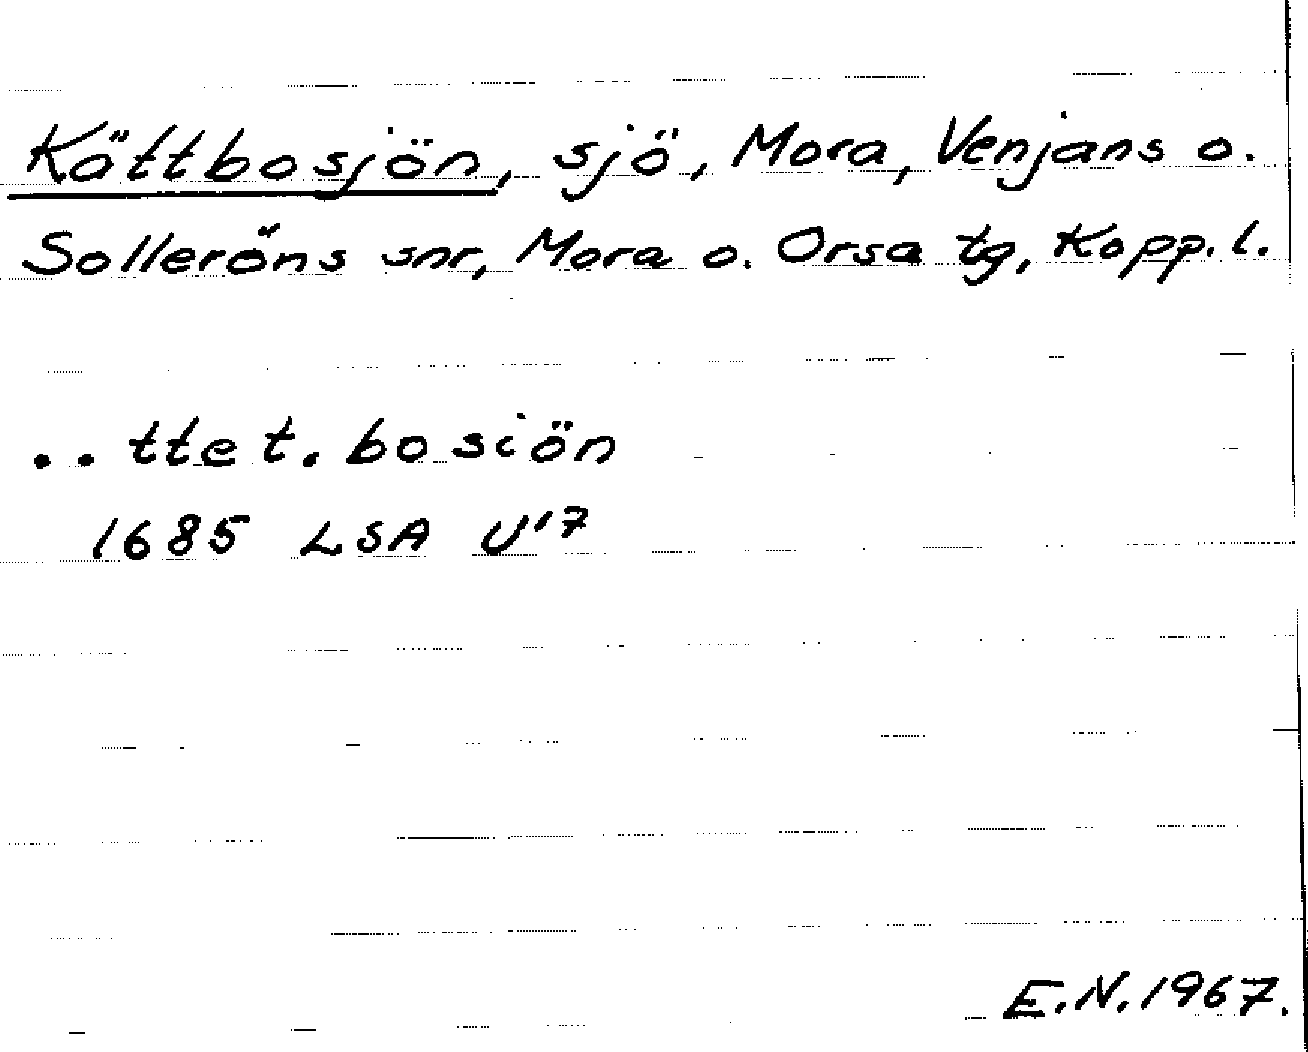 Kättbosjön, sjö, Mora, Venjans o.
Solleröns snr, Mora o. Orsa tg, Kopp. l.
.. ttet. bosiön
1685 LSA U'7
E.N. 1967.